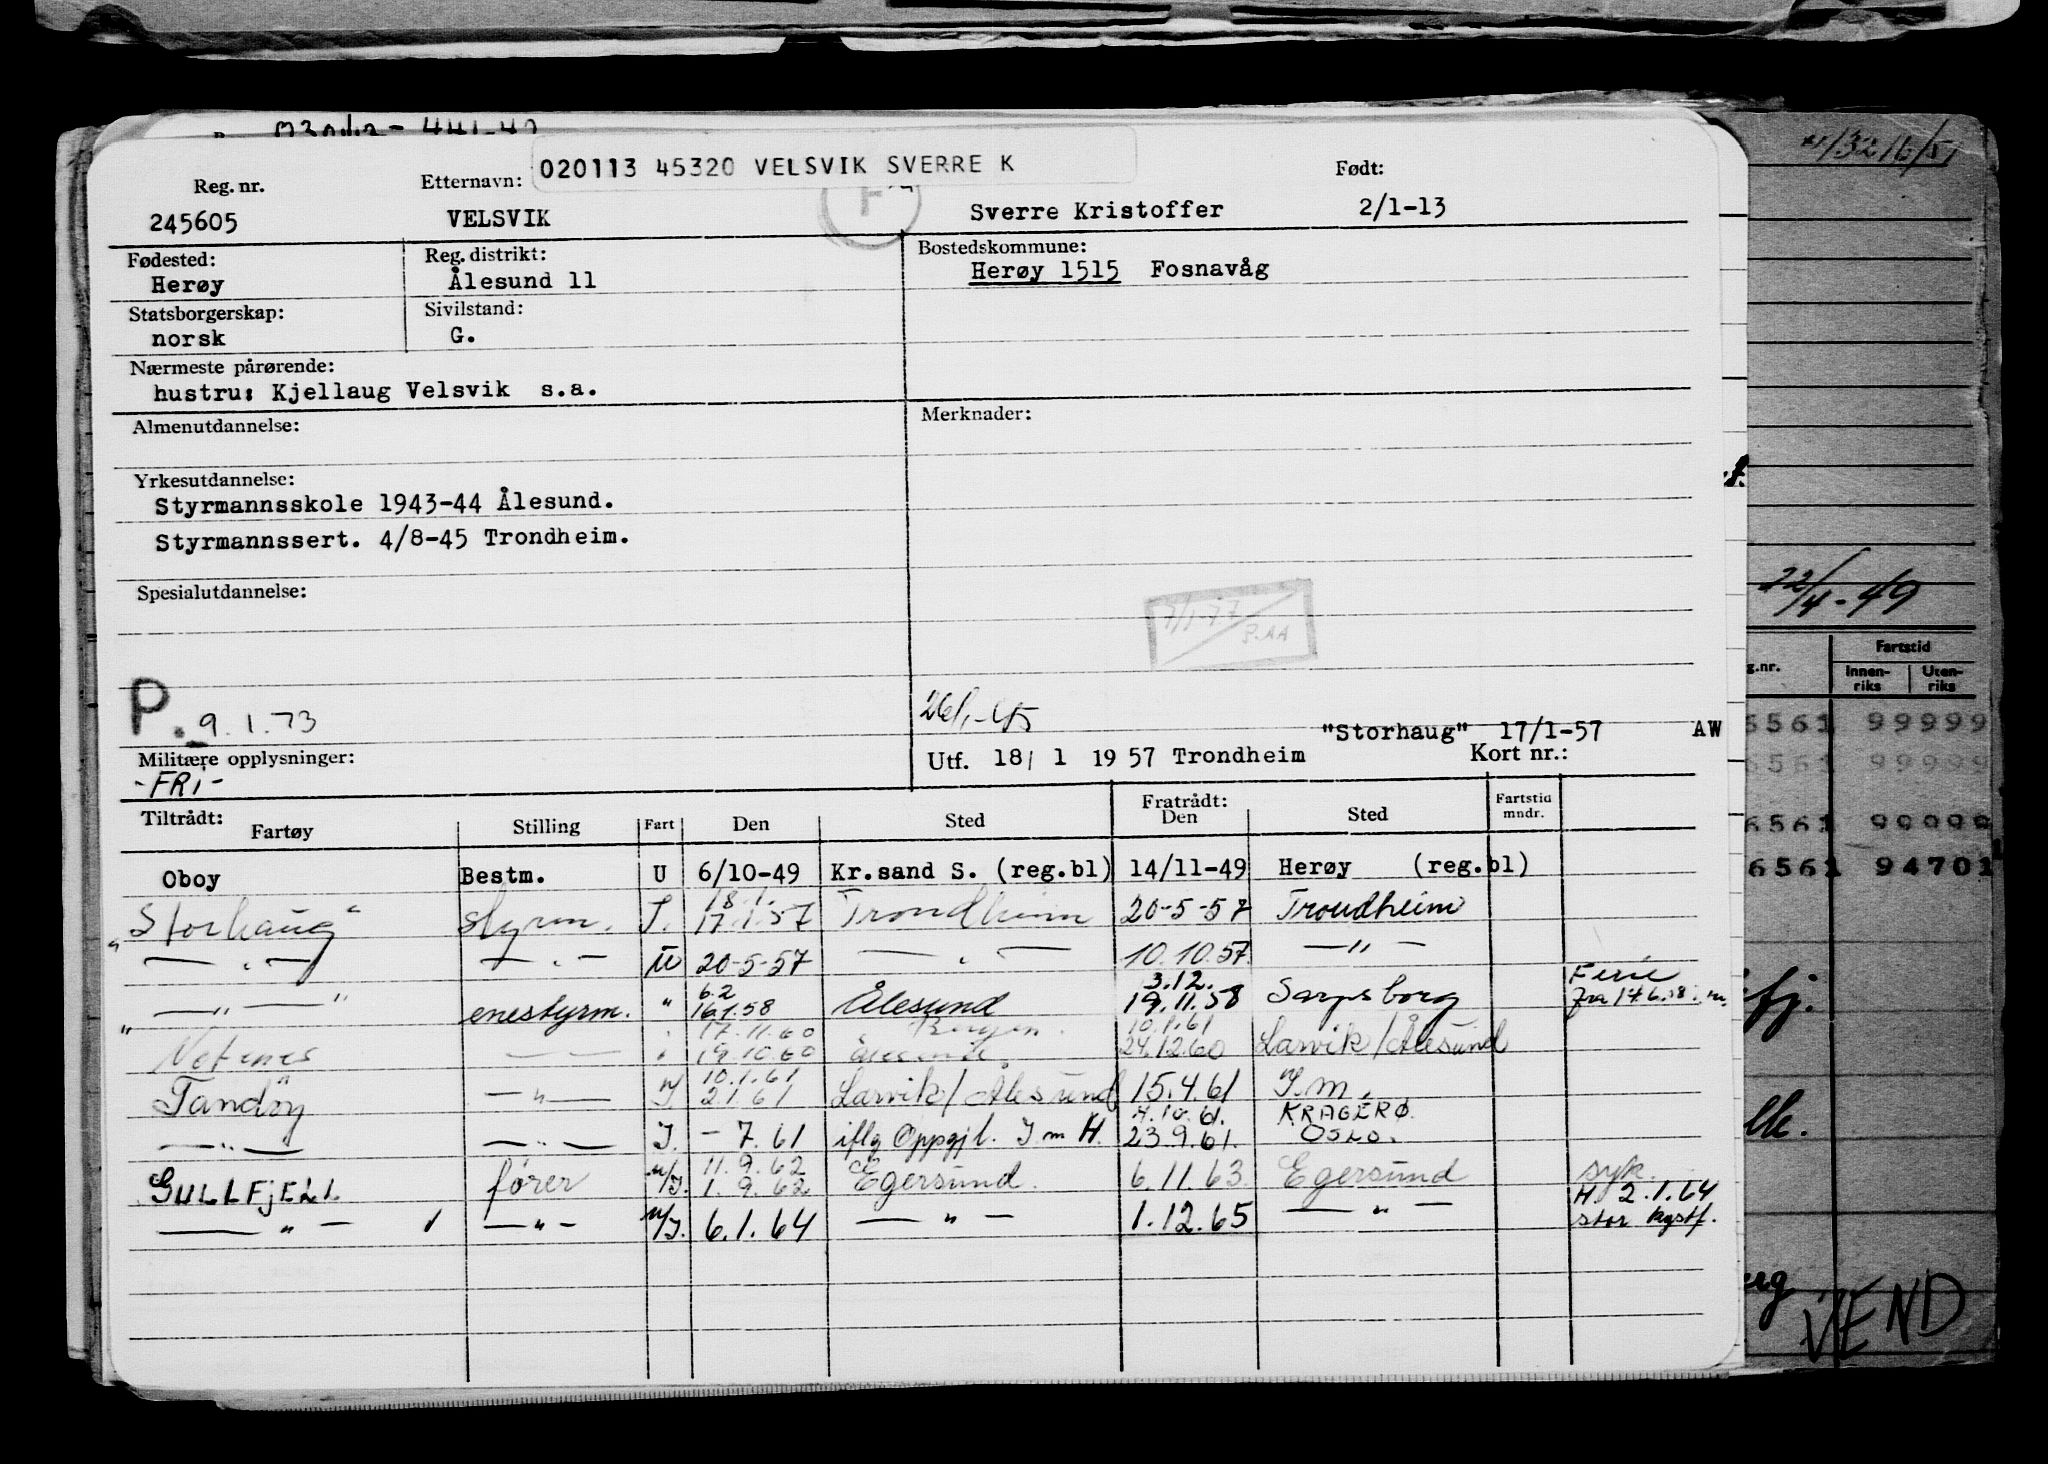 020113 45320 VELSVIK SVERRE K
Reg. nr. Etternavn: Født:
245605 VELSVIK Sverre Kristoffer 2/1-13
F
Fødested: Reg. distrikt: Bostedskommune:
Herøy Ålesund 11 Herøy 1515 Fosnavåg
Statsborgerskap: Sivilstand:
norsk G.
Nærmeste pårørende:
hustru: Kjellaug Velsvik s.a.
Almenutdannelse: Merknader:
Yrkesutdannelse:
Styrmannsskole 1943-44 Ålesund.
Styrmannssert. 4/8-45 Trondheim.
Spesialutdannelse:
P. 9.1.73
"Storhaug" 17/1-57 AW
Militære opplysninger: Utf. 18/ 1 1957 Trondheim Kort nr.:
-FRI-
Tiltrådt: Fratrådt:
Fartøy Stilling Fart Den Sted Den Sted Fartstid mndr.
Oboy Bestm. U 6/10-49 Kr.sand S. (reg.bl) 14/11-49 Herøy (reg.bl)
18.1.
"Storhaug" styrm. I. 17.1.57 Trondheim 20-5-57 Trondheim
— " — — " — U 20-5-57 — " — 10.10.57. — " —
6.2 3.12. Ferie
— " — enestyrm. " 16.1.58 Ålesund 19.11.58 Sarpsborg fra 17.6.58
17.11.60 Bergen. 10.1.61
— — " 19.10.60 Ålesund. 24.12.60 Larvik/Ålesund
10.1.61
Tandøy — " — 2.1.61 Larvik/Ålesund 15.4.61 I.m.
4.10.61. KRAGERØ
— " — — " — I. - 7.61 iflg Oppgj l. I m H. 23.9.61. OSLO.
11.9.62 syk
GULLFJELL fører N/I. 1.9.62 Egersund. 6.11.63. Egersund H 2.1.64
— " — — " — N/I. 6.1.64 — " — 1.12.65 — " — stor kystf.
22/4-49
g.nr. Fartstid
Innen-riks Uten-riks
6561 99999
6561 99999
6561 99999
6561 94701
VEND